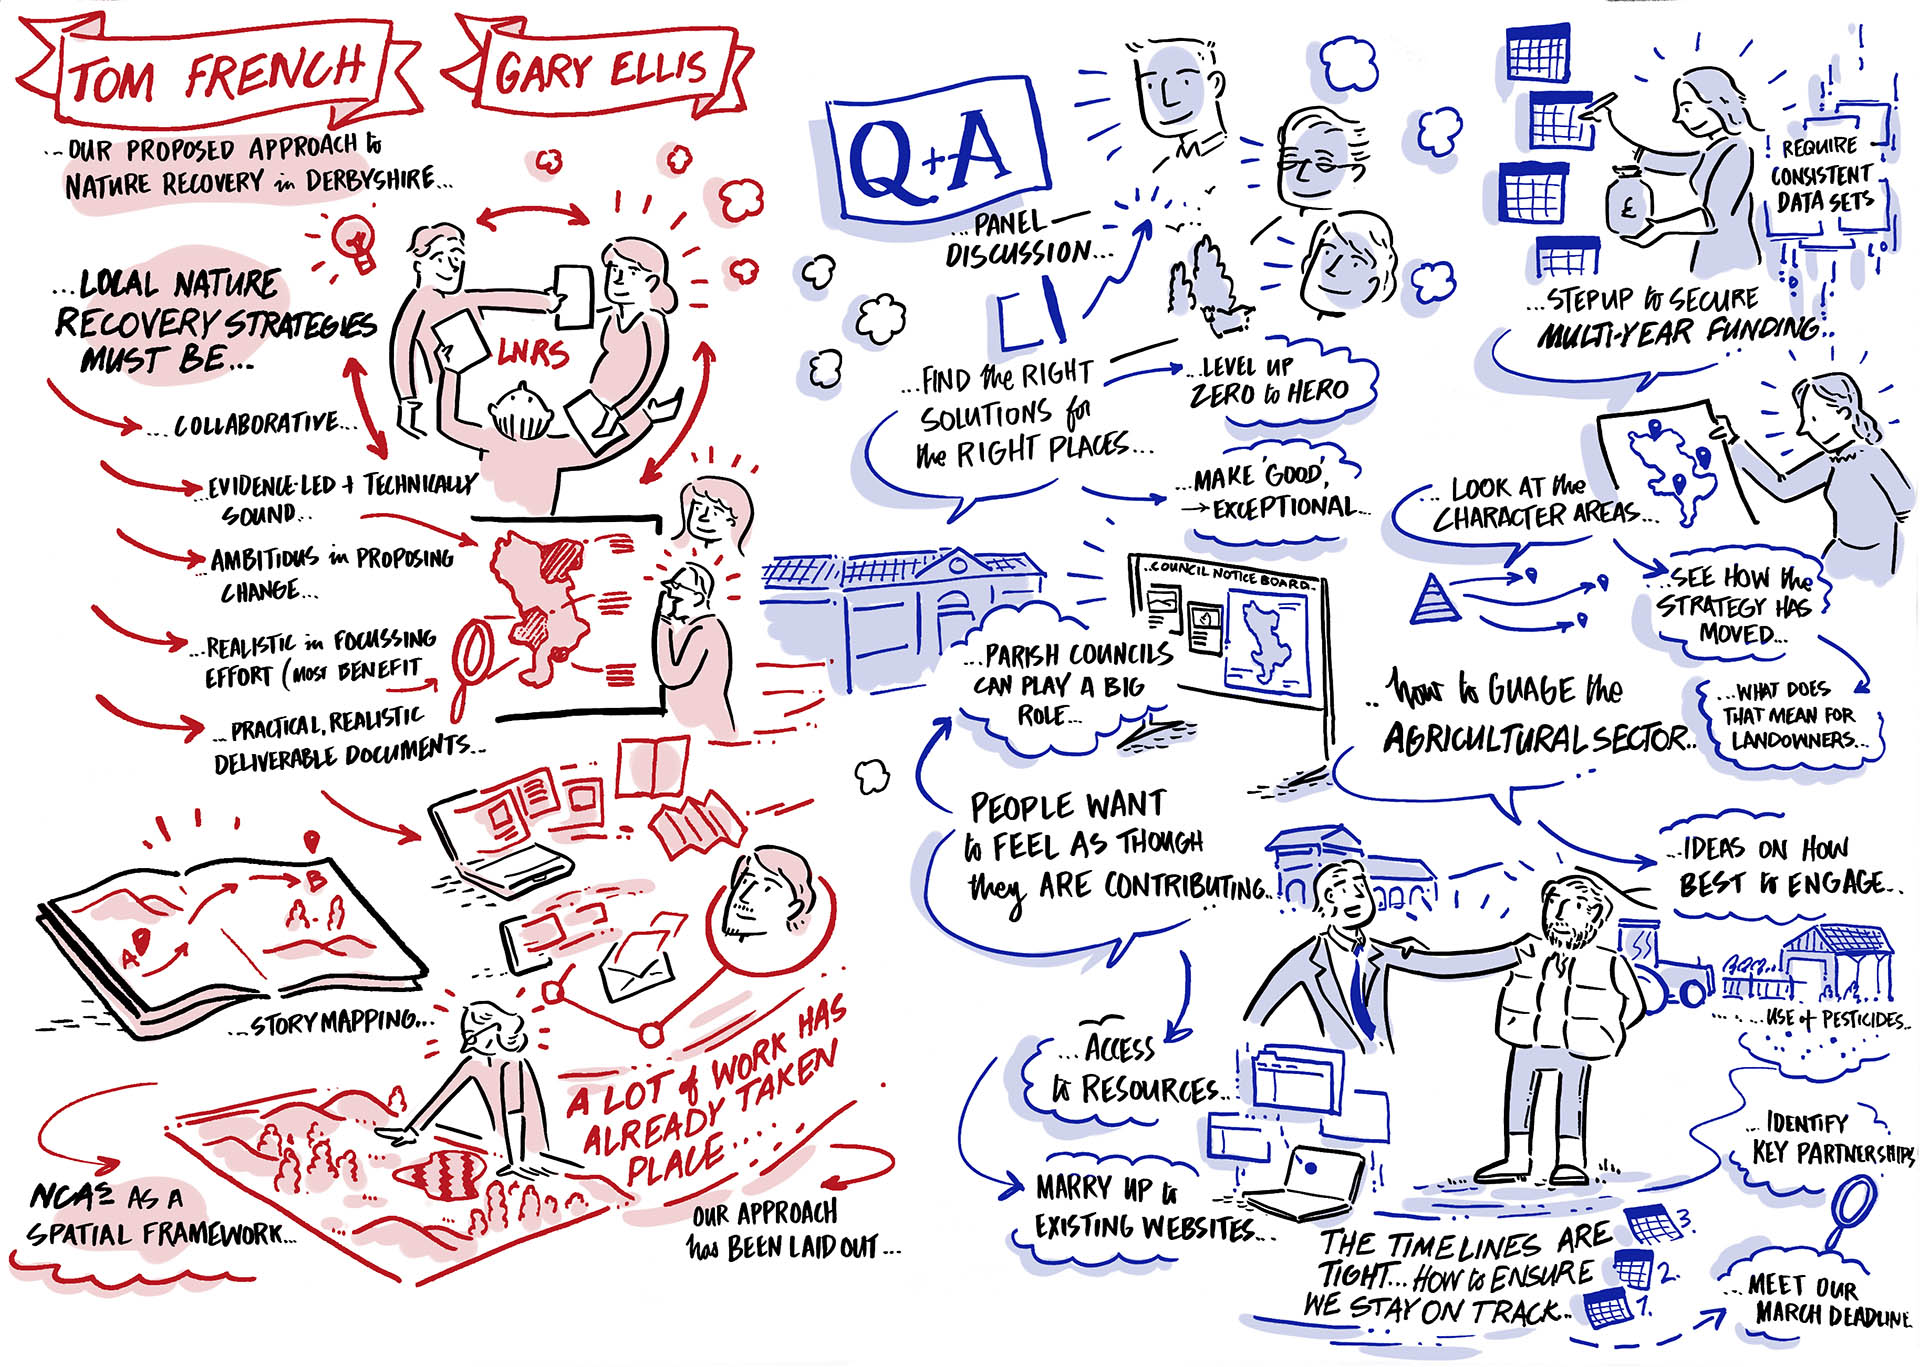 TOM FRENCH
GARY ELLIS
... OUR PROPOSED APPROACH to
NATURE RECOVERY in DERBYSHIRE...
...LOCAL NATURE
RECOVERY STRATEGIES
MUST BE...
... COLLABORATIVE...
...EVIDENCE-LED + TECHNICALLY
SOUND...
...AMBITIOUS in PROPOSING
CHANGE...
...REALISTIC in FOCUSSING
EFFORT (MOST BENEFIT
...PRACTICAL, REALISTIC
DELIVERABLE DOCUMENTS...
LNRS
A
B
...STORY MAPPING...
NCAs AS A
SPATIAL FRAMEWORK...
A LOT of WORK HAS
ALREADY TAKEN
PLACE.....
OUR APPROACH
has BEEN LAID OUT...
Q+A
...PANEL
DISCUSSION...
...FIND the RIGHT
SOLUTIONS for
the RIGHT PLACES...
...LEVEL UP
ZERO to HERO
...MAKE 'GOOD',
→ EXCEPTIONAL...
...COUNCIL NOTICE BOARD...
...PARISH COUNCILS
CAN PLAY A BIG
ROLE...
PEOPLE WANT
to FEEL AS THOUGH
they ARE CONTRIBUTING...
...ACCESS
to RESOURCES...
MARRY UP to
EXISTING WEBSITES...
£
REQUIRE
CONSISTENT
DATA SETS
...STEP UP to SECURE
MULTI-YEAR FUNDING...
... LOOK AT the
CHARACTER AREAS...
...SEE HOW the
STRATEGY HAS
MOVED...
...WHAT DOES
THAT MEAN FOR
LANDOWNERS...
..how to GUAGE the
AGRICULTURAL SECTOR..
...IDEAS ON HOW
BEST to ENGAGE...
......USE of PESTICIDES...
...IDENTIFY
KEY PARTNERSHIPS
THE TIMELINES ARE
TIGHT... HOW to ENSURE
WE STAY ON TRACK...
3.
2.
1.
...MEET OUR
MARCH DEADLINE.